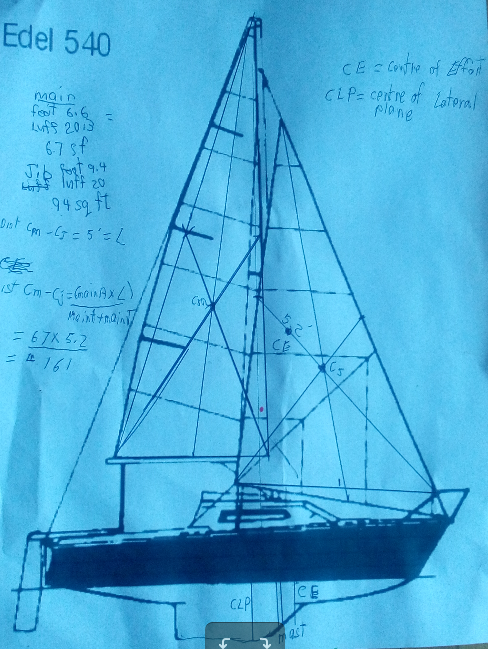 Edel 540
CE = Centre of Effort
CLP = centre of Lateral
plane
main
foot 6.6 =
Luff 20.3
67 sf
Jib foot 9.4
luff 20
94 sq ft
Dist Cm - CJ = 5' = L
ist Cm - Cj = (main A x L)
= 67 x 5.2
= 161
Cm
5
2'
CE
CJ
CLP
CE
mast